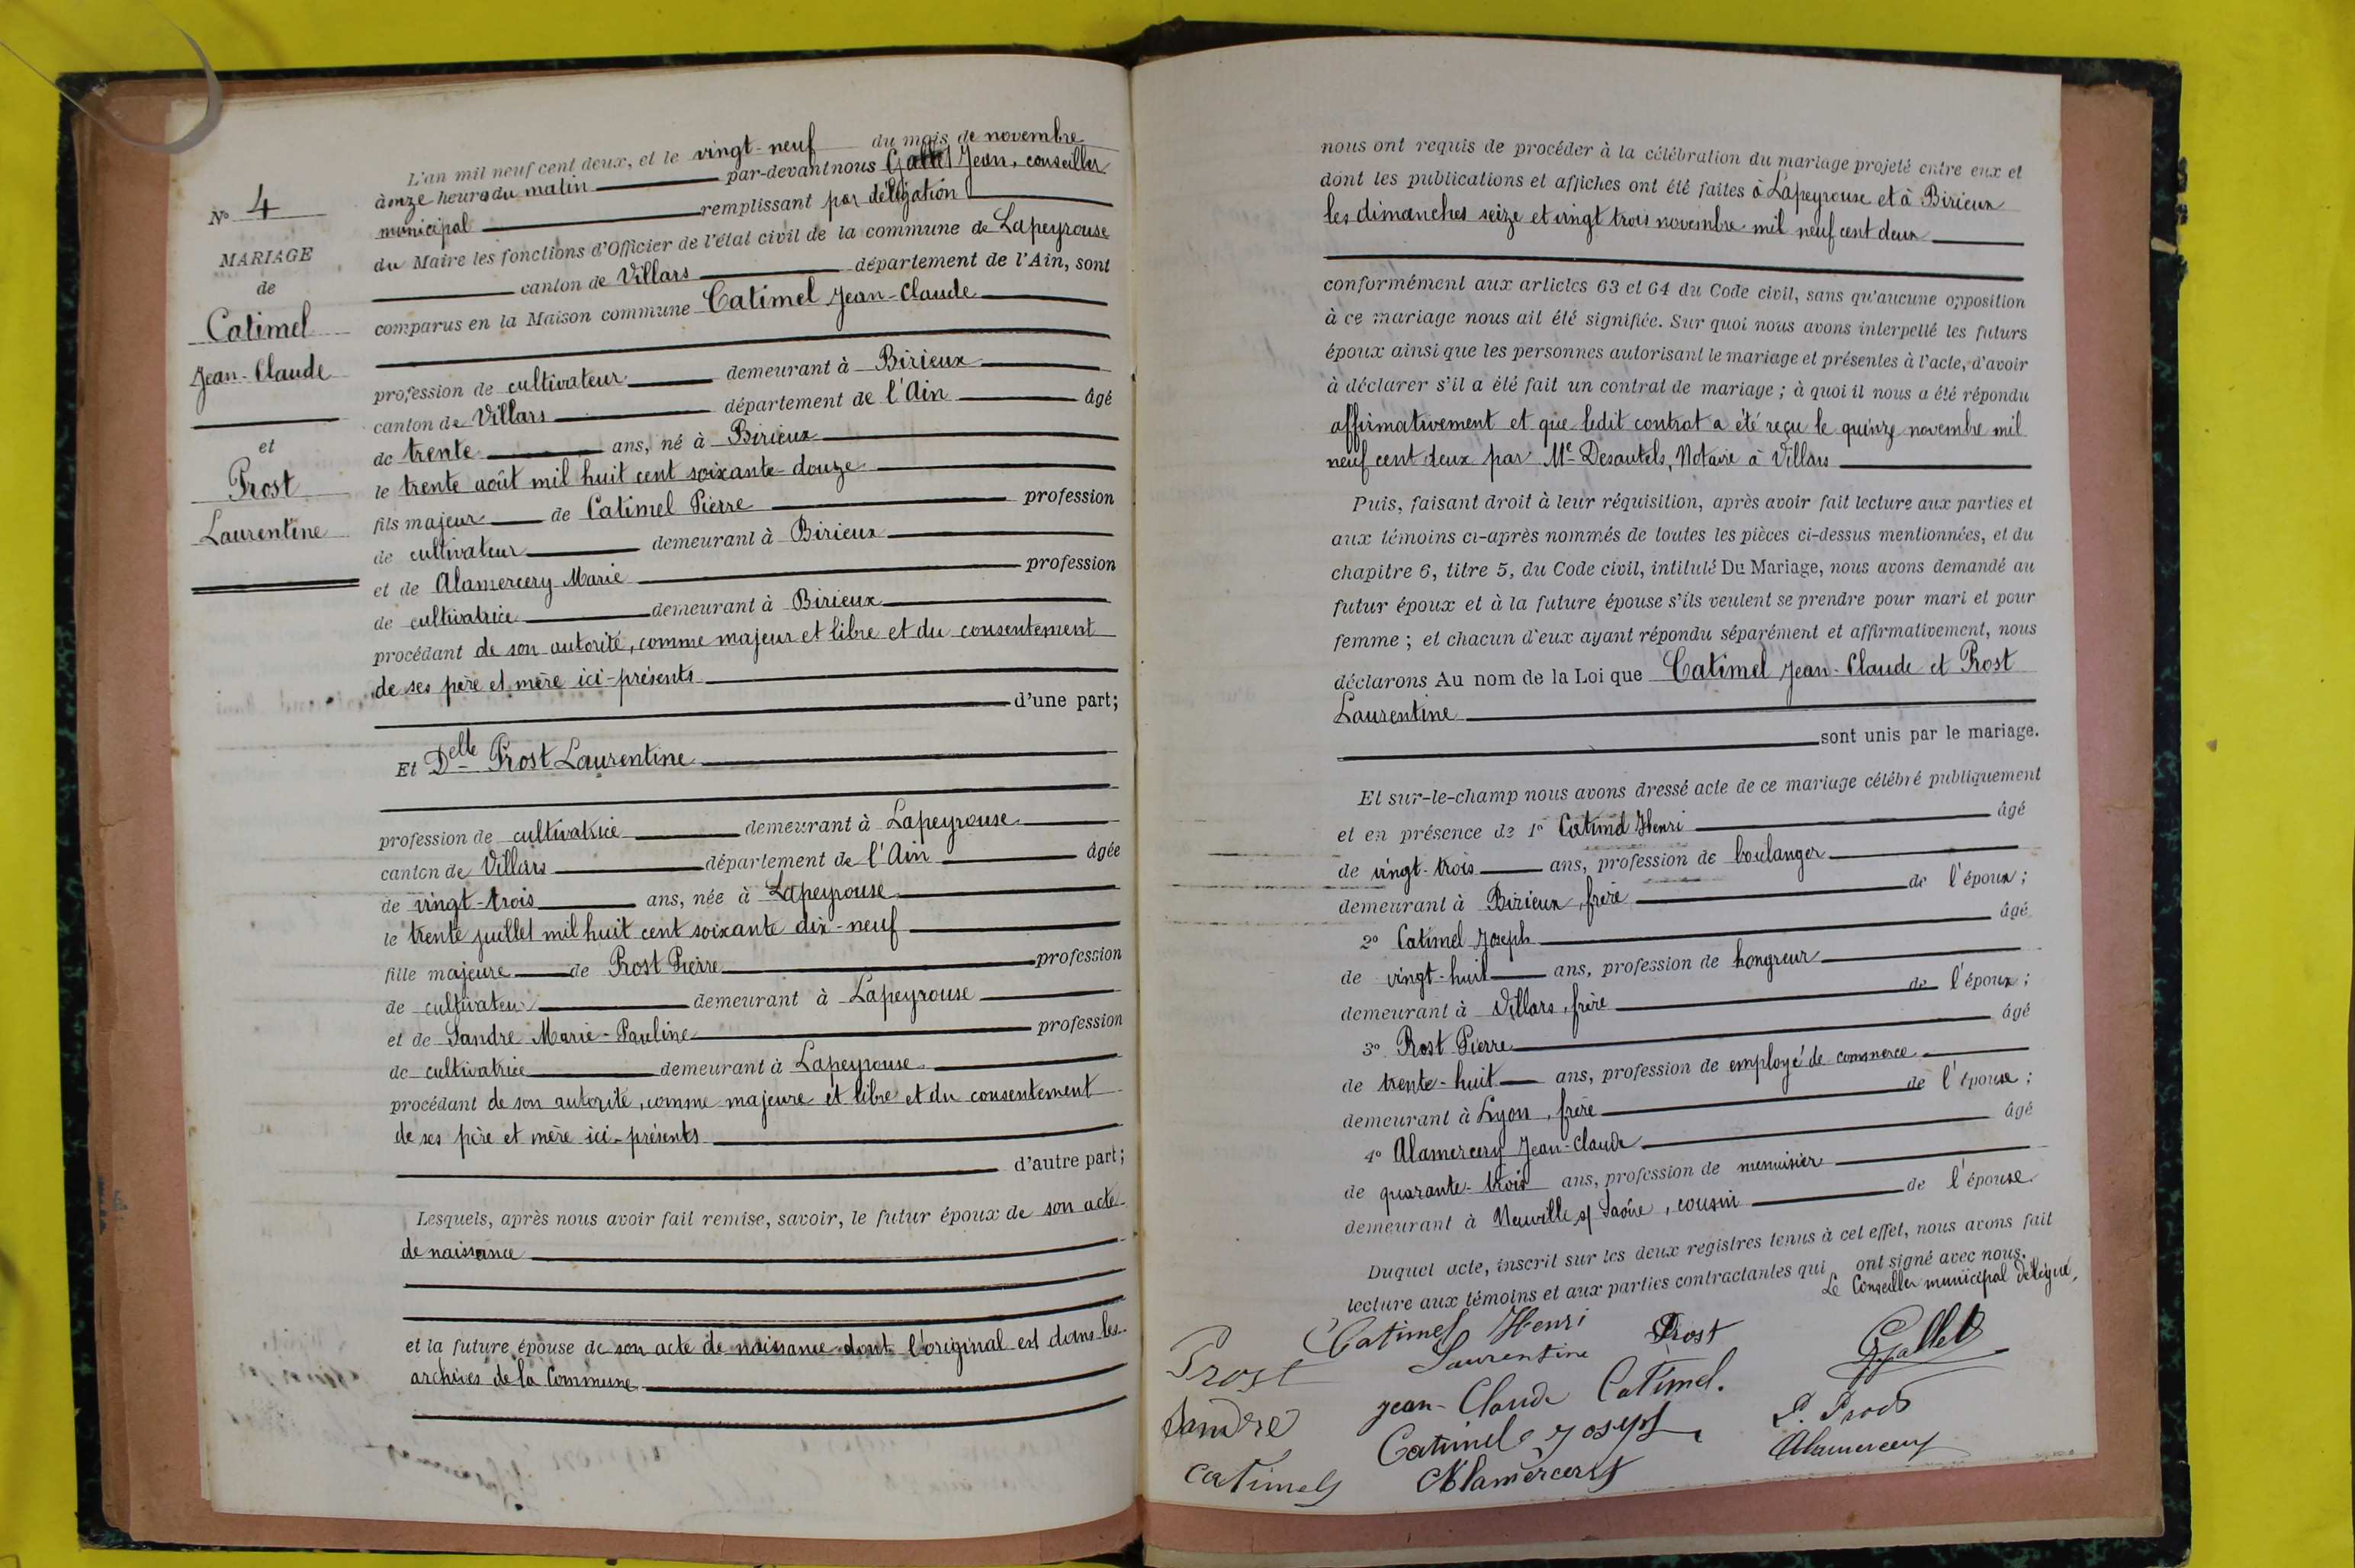 N° 4
MARIAGE
de
Catimel
Jean-Claude
et
Prost
Laurentine
L'an mil neuf cent deux, et le vingt-neuf du mois de novembre
à onze heures du matin par-devant nous Gallet Jean, conseiller
municipal remplissant par délégation
du Maire les fonctions d'Officier de l'état civil de la commune de Lapeyrouse
canton de Villars département de l'Ain, sont
comparus en la Maison commune Catimel Jean-Claude
profession de cultivateur demeurant à Birieux
canton de Villars département de l'Ain âgé
de trente ans, né à Birieux
le trente août mil huit cent soixante-douze
fils majeur de Catimel Pierre profession
de cultivateur demeurant à Birieux
et de Alamercery Marie profession
de cultivatrice demeurant à Birieux
procédant de son autorité, comme majeur et libre et du consentement
de ses père et mère ici-présents
d'une part;
Et Delle Prost Laurentine
profession de cultivatrice demeurant à Lapeyrouse
canton de Villars département de l'Ain âgée
de vingt-trois ans, née à Lapeyrouse
le trente juillet mil huit cent soixante dix-neuf
fille majeure de Prost Pierre profession
de cultivateur demeurant à Lapeyrouse
et de Sandre Marie-Pauline profession
de cultivatrice demeurant à Lapeyrouse
procédant de son autorité, comme majeure et libre et du consentement
de ses père et mère ici-présents
d'autre part;
Lesquels, après nous avoir fait remise, savoir, le futur époux de son acte
de naissance
et la future épouse de son acte de naissance dont l'original est dans les
archives de la Commune
nous ont requis de procéder à la célébration du mariage projeté entre eux et
dont les publications et affiches ont été faites à Lapeyrouse et à Birieux
les dimanches seize et vingt trois novembre mil neuf cent deux
conformément aux articles 63 et 64 du Code civil, sans qu'aucune opposition
à ce mariage nous ait été signifiée. Sur quoi nous avons interpellé les futurs
époux ainsi que les personnes autorisant le mariage et présentes à l'acte, d'avoir
à déclarer s'il a été fait un contrat de mariage ; à quoi il nous a été répondu
affirmativement et que ledit contrat a été reçu le quinze novembre mil
neuf cent deux par Me Desautels, Notaire à Villars
Puis, faisant droit à leur réquisition, après avoir fait lecture aux parties et
aux témoins ci-après nommés de toutes les pièces ci-dessus mentionnées, et du
chapitre 6, titre 5, du Code civil, intitulé Du Mariage, nous avons demandé au
futur époux et à la future épouse s'ils veulent se prendre pour mari et pour
femme ; et chacun d'eux ayant répondu séparément et affirmativement, nous
déclarons Au nom de la Loi que Catimel Jean-Claude et Prost
Laurentine
sont unis par le mariage.
Et sur-le-champ nous avons dressé acte de ce mariage célébré publiquement
et en présence de 1° Catimel Henri âgé
de vingt-trois ans, profession de boulanger
demeurant à Birieux, frère de l'époux ;
2° Catimel Joseph âgé
de vingt-huit ans, profession de hongreur
demeurant à Villars, frère de l'époux ;
3° Prost Pierre âgé
de trente-huit ans, profession de employé de commerce
demeurant à Lyon, frère de l'épouse ;
4° Alamercery Jean-Claude âgé
de quarante-trois ans, profession de menuisier
demeurant à Neuville s/ Saône, cousin de l'épouse
Duquel acte, inscrit sur les deux registres tenus à cet effet, nous avons fait
lecture aux témoins et aux parties contractantes qui ont signé avec nous.
Le Conseiller municipal délégué,
Catimel Henri Prost
Prost Laurentine Gallet
Jean-Claude Catimel.
Sandre Catimel Joseph P. Prost
Catimel Alamercery Alamercery